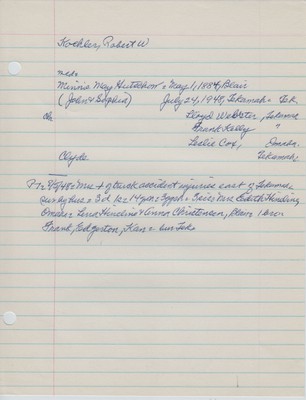 Koehler, Robert W
Minnie May Hutchson = May 1, 1884, Blair
(John & Sophia) July 24, 1948, Tekamah = Tek
ch Lloyd Webster, Tekamah
Frank Kelly "
Leslie Cox, Omaha
Clyde Tekamah
PT= 8/5/48= Mrs + of truck accident injuries east of Tekamah
Sur by hus = 3d 1s= 14 gdn= 3 ggch = Srs= Mrs Edith Hunding
Omaha = Lena Hinsling & Anna Christensen, Blair 1 bro=
Frank, Edgerton, Kan = bur Tek